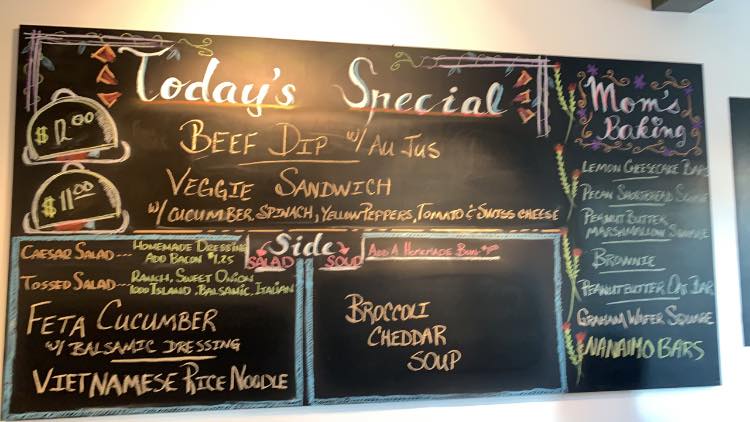 Today's Special
$12.00
BEEF DIP w/ AU JUS
$11.00
VEGGIE SANDWICH
w/ CUCUMBER, SPINACH, YELLOW PEPPERS, TOMATO & SWISS CHEESE
Side
SALAD SOUP
CAESAR SALAD --- HOMEMADE DRESSING
ADD BACON $1.25
TOSSED SALAD --- RANCH, SWEET ONION
1000 ISLAND, BALSAMIC, ITALIAN
FETA CUCUMBER
w/ BALSAMIC DRESSING
VIETNAMESE RICE NOODLE
ADD A HOMEMADE
BROCCOLI
CHEDDAR
SOUP
Mom's
Baking
LEMON CHEESECAKE BARS
PECAN SHORTBREAD SQUARE
PEANUT BUTTER
MARSHMALLOW SQUARE
BROWNIE
PEANUT BUTTER OAT BAR
GRAHAM WAFER SQUARE
NANAIMO BARS